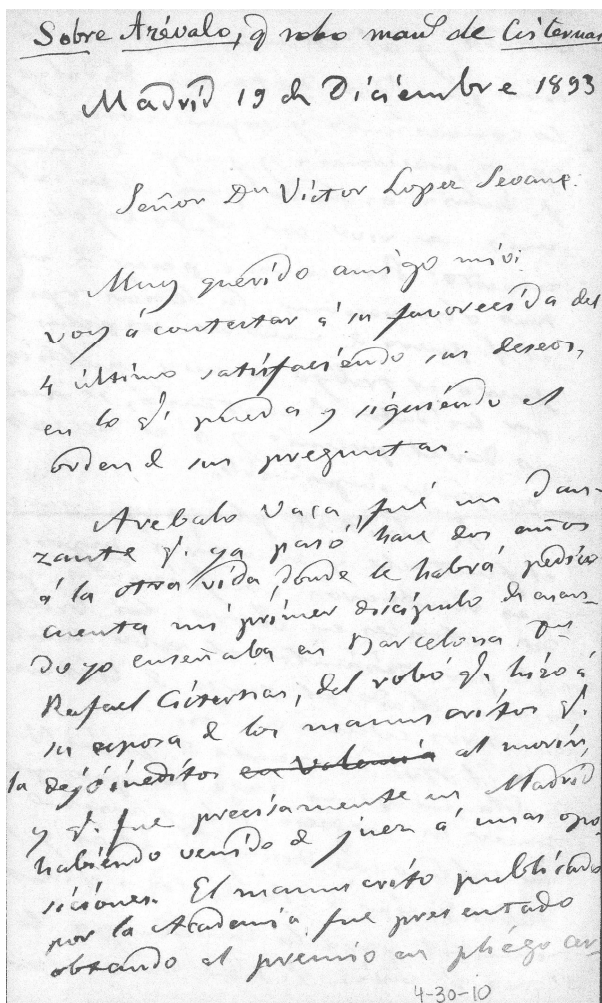 Sobre Arévalo, q robo manl de Cisternas
Madrid 19 de Diciembre 1893
Señor Dn Victor Lopez Seoane.
Muy querido amigo mio:
voy á contestar á su favorecida del
4 último satisfaciendo sus deseos,
en lo q. pueda y siguiendo el
orden de sus preguntas.
Arebalo Vaca, fué un dan-
zante q. ya pasó, hace dos años
á la otra vida, donde le habrá pedido
cuenta mi primer dicipulo de cuan-
do yo enseñaba en Barcelona
Rafael Cisternas, del robó q. hizo á
su esposa de los manuscritos q.
la dejó inéditos en Valencia al morir,
y q. fue precisamente en Madrid
habiendo venido de juez á unas opo-
siciones. El manuscrito publicado
por la Academia fue presentado
obtando al premio en pliégo cer-
4-30-10